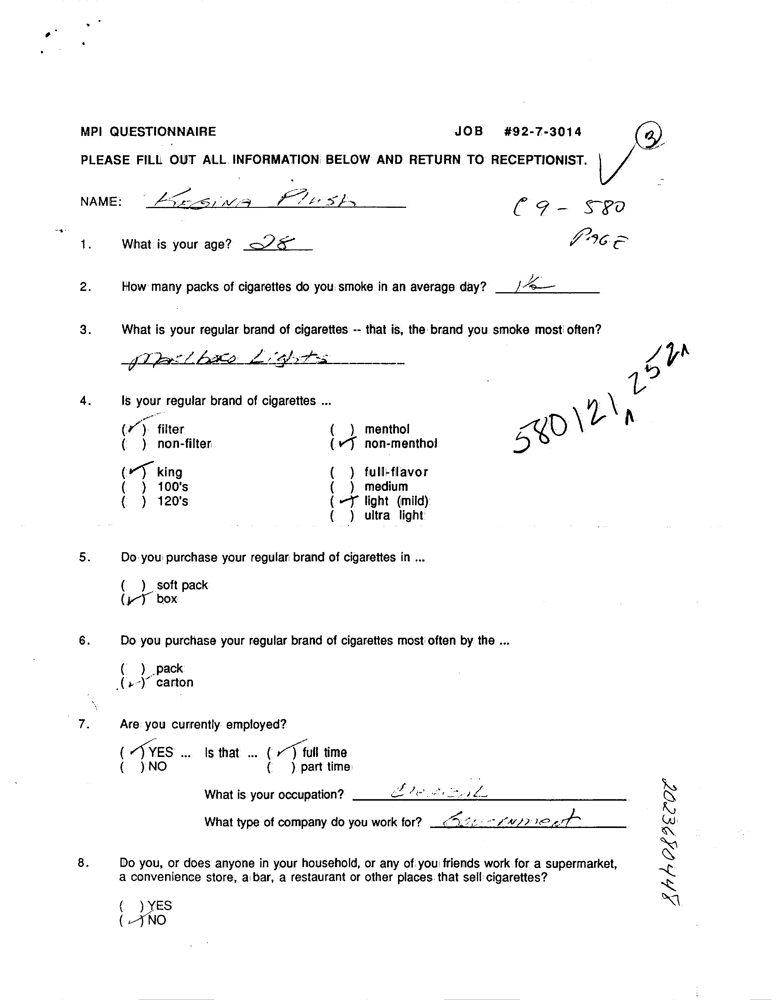 MPI QUESTIONNAIRE JOB #92-7-3014
3
PLEASE FILL OUT ALL INFORMATION BELOW AND RETURN TO RECEPTIONIST.
NAME: Regina Plush
C9-580
PAGE
1. What is your age? 28
2. How many packs of cigarettes do you smoke in an average day? 1½
3. What is your regular brand of cigarettes -- that is, the brand you smoke most often?
Marlboro Lights
580121 252
4. Is your regular brand of cigarettes ...
(✓) filter ( ) menthol
( ) non-filter (✓) non-menthol
(✓) king ( ) full-flavor
( ) 100's ( ) medium
( ) 120's (✓) light (mild)
( ) ultra light
5. Do you purchase your regular brand of cigarettes in ...
( ) soft pack
(✓) box
6. Do you purchase your regular brand of cigarettes most often by the ...
( ) pack
(✓) carton
7. Are you currently employed?
(✓) YES ... Is that ... (✓) full time
( ) NO ( ) part time
What is your occupation? Clerical
What type of company do you work for? Government
8. Do you, or does anyone in your household, or any of you friends work for a supermarket,
a convenience store, a bar, a restaurant or other places that sell cigarettes?
( ) YES
(✓) NO
2023680448